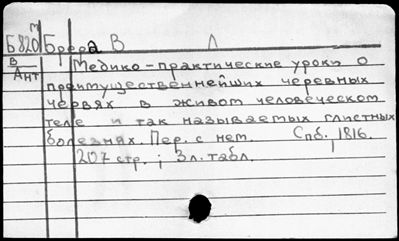 м
Б820 Брера В Л
В
Ант
Медико-практические уроки о
преимущественнейших черевных
червях в живот человеческом
теле и так называемых глистных
болезнях. Пер. с нем. Спб. 1816.
207 стр.; 3л. табл.